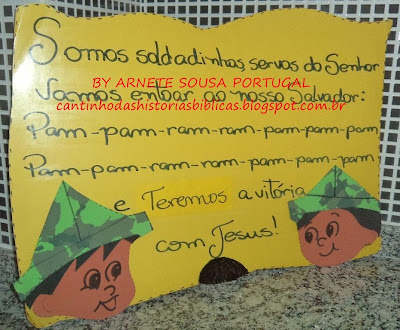 Somos soldadinhos servos do Senhor
BY ARNETE SOUSA PORTUGAL
Vamos entoar ao nosso Salvador:
cantinhodashistoriasbiblicas.blogspot.com.br
Pam-pam-ram-ram-pam-pam-pam
Pam-pam-ram-ram-pam-pam-pam
e Teremos a vitória
com Jesus!